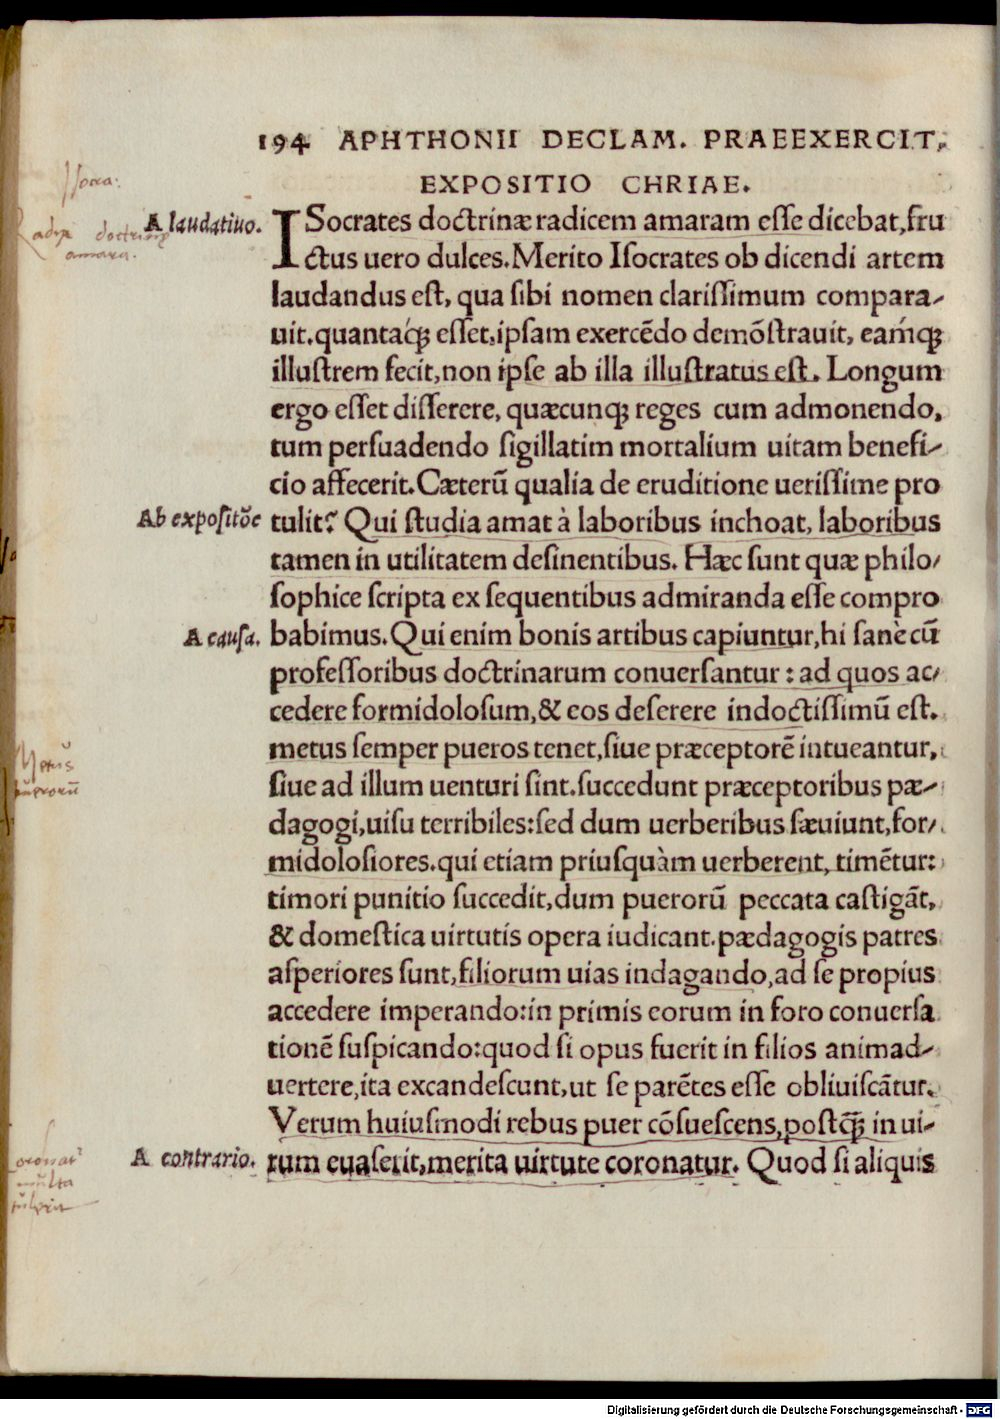 194 APHTHONII DECLAM. PRAEEXERCIT.
EXPOSITIO CHRIAE.
A laudatiuo.
ISocrates doctrinæ radicem amaram eſſe dicebat, fru
ctus uero dulces. Merito Iſocrates ob dicendi artem
laudandus eſt, qua ſibi nomen clariſſimum compara-
uit. quantaq́ꝫ eſſet, ipſam exercẽdo demõſtrauit, eamq́ꝫ
illuſtrem fecit, non ipſe ab illa illuſtratus eſt. Longum
ergo eſſet diſſerere, quæcunqꝫ reges cum admonendo,
tum perſuadendo ſigillatim mortalium uitam benefi-
cio affecerit. Cæterũ qualia de eruditione ueriſſime pro
Ab expoſitõe
tulit? Qui ſtudia amat à laboribus inchoat, laboribus
tamen in utilitatem deſinentibus. Hæc ſunt quæ philo-
ſophice ſcripta ex ſequentibus admiranda eſſe compro
A cauſa.
babimus. Qui enim bonis artibus capiuntur, hi ſanè cũ
profeſſoribus doctrinarum conuerſantur: ad quos ac-
cedere formidoloſum, & eos deſerere indoctiſſimũ eſt.
metus ſemper pueros tenet, ſiue præceptorẽ intueantur,
ſiue ad illum uenturi ſint. ſuccedunt præceptoribus pæ-
dagogi, uiſu terribiles: ſed dum uerberibus ſæuiunt, for-
midoloſiores. qui etiam priuſquàm uerberent, timẽtur:
timori punitio ſuccedit, dum puerorũ peccata caſtigãt,
& domeſtica uirtutis opera iudicant. pædagogis patres
aſperiores ſunt, filiorum uias indagando, ad ſe propius
accedere imperando: in primis eorum in foro conuerſa
tionẽ ſuſpicando: quod ſi opus fuerit in filios animad-
uertere, ita excandeſcunt, ut ſe parẽtes eſſe obliuiſcãtur.
Verum huiuſmodi rebus puer cõſueſcens, poſtꝗꝫ in ui-
A contrario.
rum euaſerit, merita uirtute coronatur. Quod ſi aliquis
doctrinæ
amara.
Metus
multa
Digitalisierung gefördert durch die Deutsche Forschungsgemeinschaft - DFG